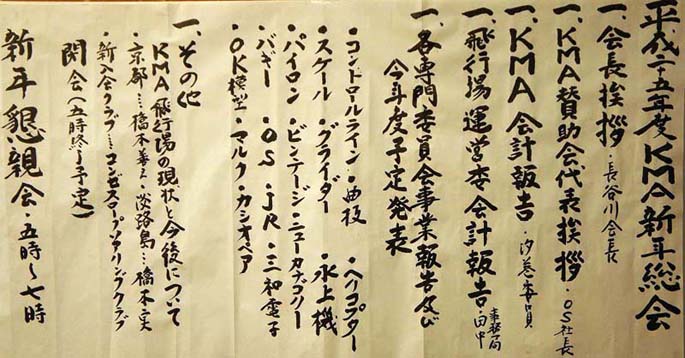 平成二十五年度KMA新年総会
一、会長挨拶・長谷川会長
一、KMA賛助会代表挨拶・OS社長
一、KMA会計報告・汐巻委員
一、飛行場運営委会計報告・事務局田中
一、各専門委員会事業報告及び
今年度予定発表
・コントロールライン・曲技・ヘリコプター
・スケール・グライダー・水上機
・パイロン・ビンテージ・ニューカテゴリー
・バギー・OS・JR・三和電子
・OK模型・マルク・カシオペア
一、その他
KMA飛行場の現状と今後について
・京都…橋本・淡路島…橋本
・新入会クラブ…コンゼスロープソアリングクラブ
閉会(五時終了予定)
新年懇親会・五時～七時